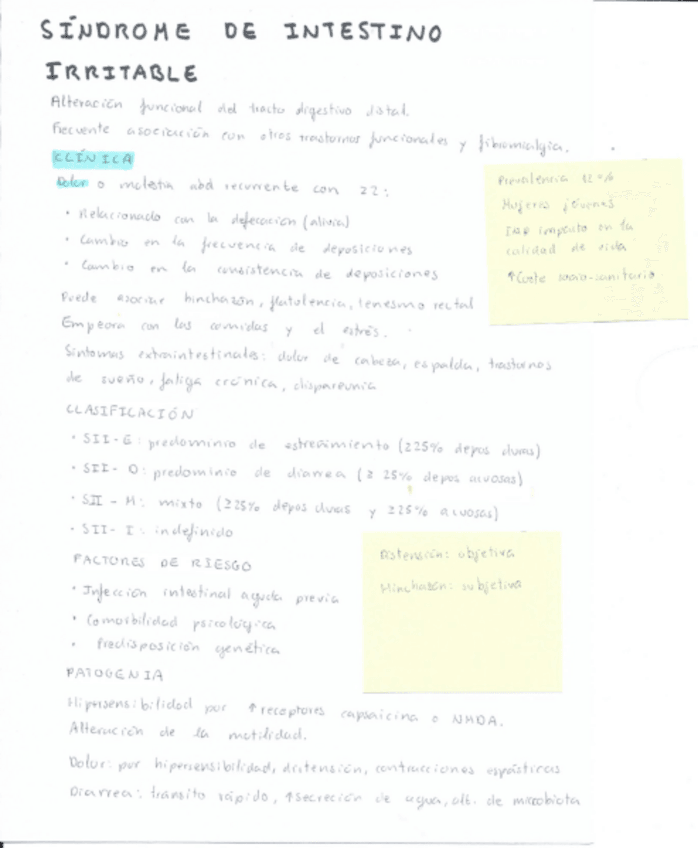 SÍNDROME DE INTESTINO
IRRITABLE
Alteración funcional del tracto digestivo distal.
Frecuente asociación con otros trastornos funcionales y fibromialgia.
CLÍNICA
Dolor o molestia abd recurrente con ≥2:
• Relacionado con la defecación (alivia)
• Cambio en la frecuencia de deposiciones
• Cambio en la consistencia de deposiciones
Puede asociar hinchazón, flatulencia, tenesmo rectal
Empeora con las comidas y el estrés.
Síntomas extraintestinales: dolor de cabeza, espalda, trastornos
de sueño, fatiga crónica, dispareunia
Prevalencia 12%
Mujeres jóvenes
Imp impacto en la
calidad de vida
↑Coste socio-sanitario
CLASIFICACIÓN
• SII-E: predominio de estreñimiento (≥25% depos duras)
• SII-D: predominio de diarrea (≥ 25% depos acuosas)
• SII-M: mixto (≥25% depos duras y ≥25% acuosas)
• SII-I: indefinido
FACTORES DE RIESGO
• Infección intestinal aguda previa
• Comorbilidad psicológica
• Predisposición genética
Distensión: objetiva
Hinchazón: subjetiva
PATOGENIA
Hipersensibilidad por ↑receptores capsaicina o NMDA.
Alteración de la motilidad.
Dolor: por hipersensibilidad, distensión, contracciones espásticas
Diarrea: tránsito rápido, ↑secreción de agua, alt. de microbiota